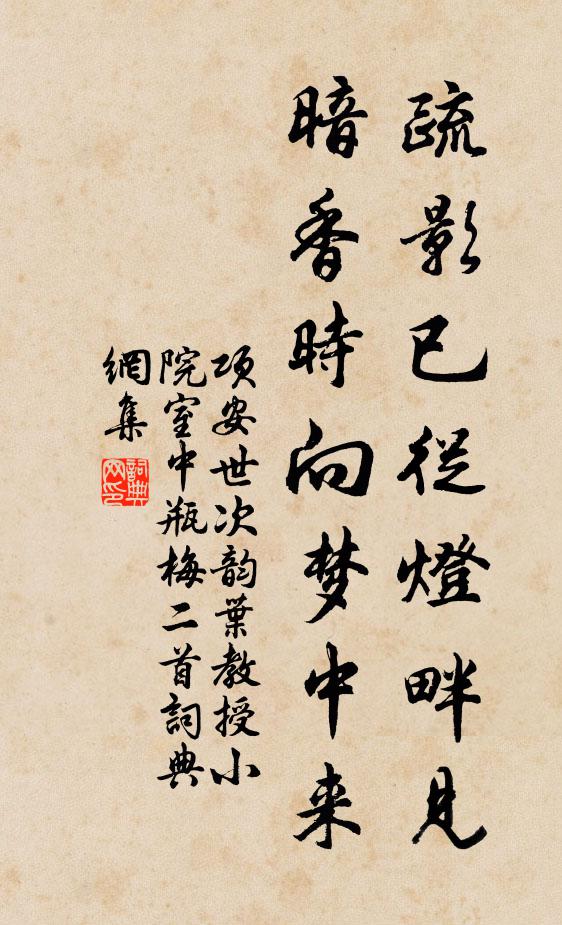 疏影已從燈畔見
暗香時向梦中来
項安世次韵葉教授小
院室中瓶梅二首詞典
網集
詞典
网印